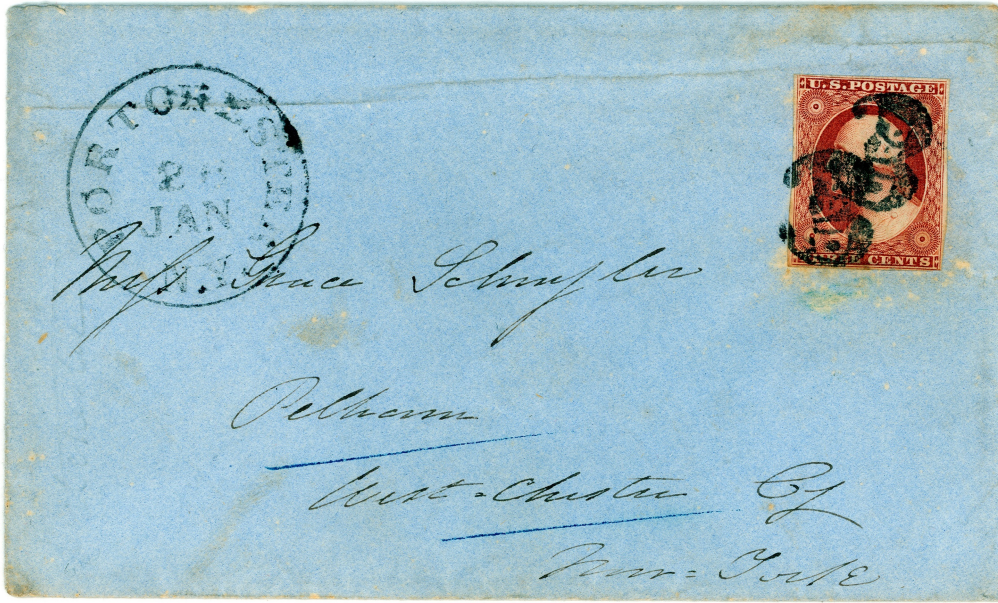 PORTCHESTER
JAN
N.Y.
U.S. POSTAGE
CENTS
Miss Grace Schuyler
Pelham
West=Chester Cy
New=York